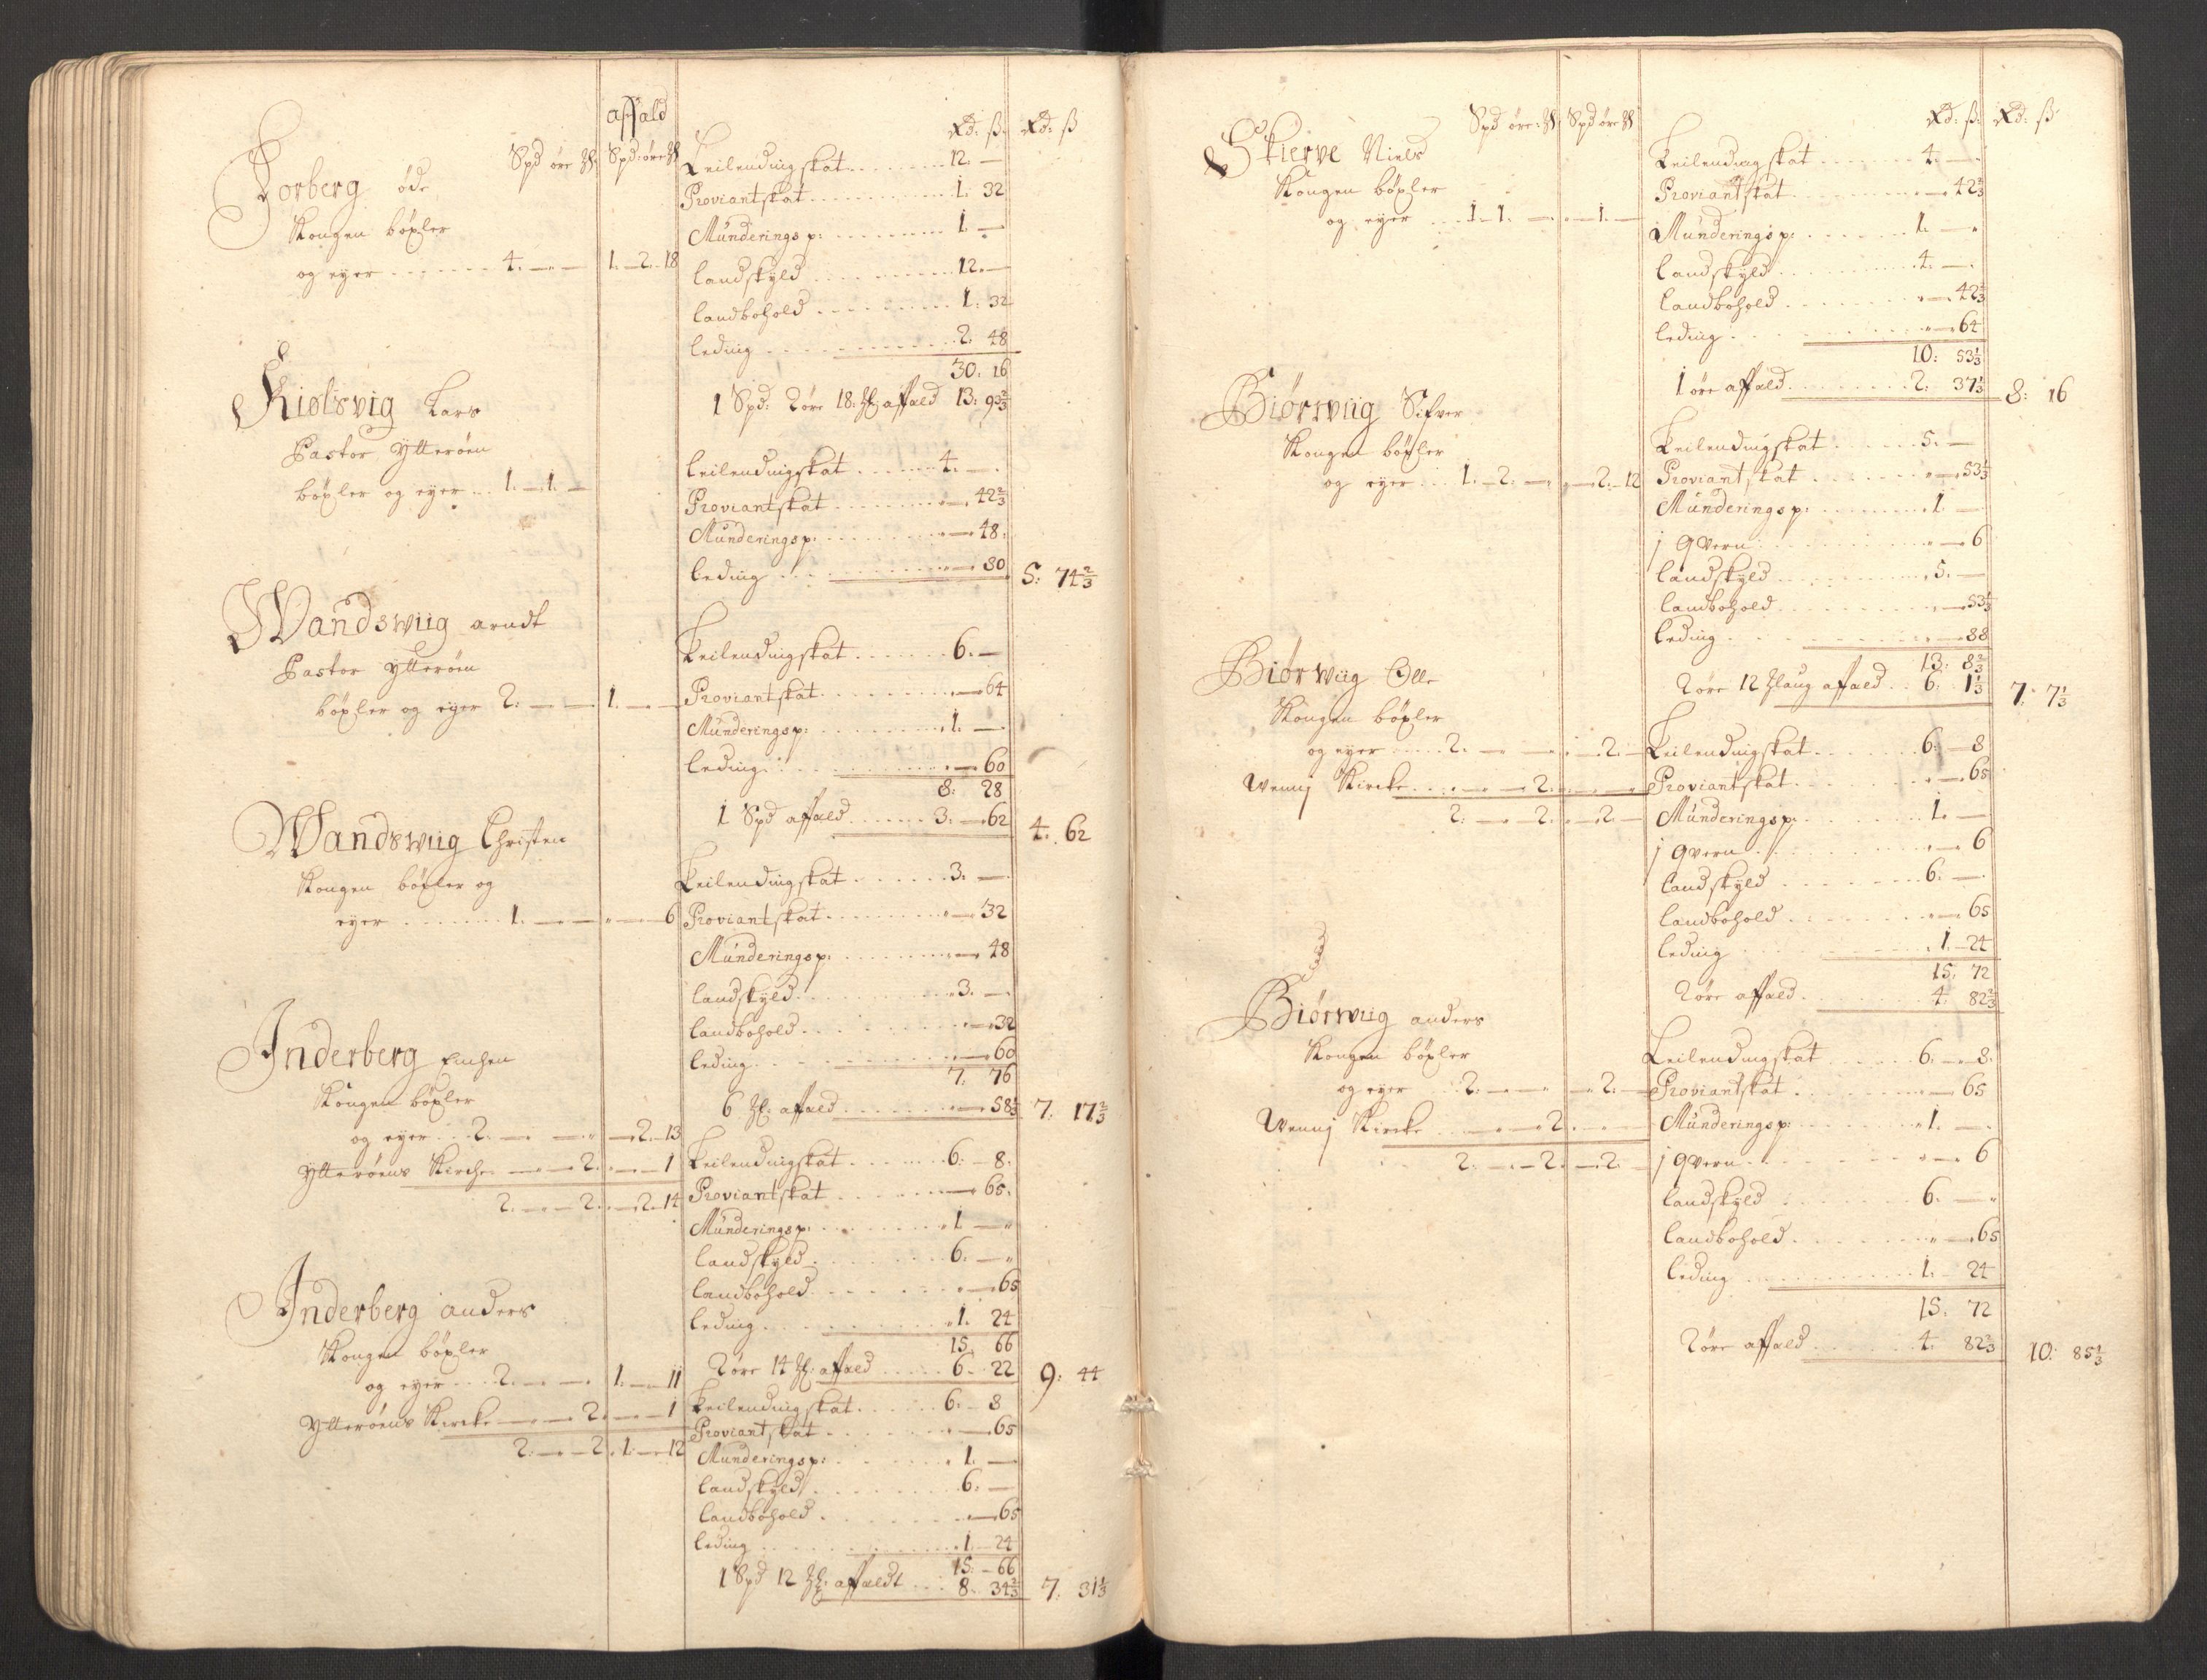 affald
Spd öre Spd: öre Rd: ß: Rd: ß
Forberg öde
Kongen böxler
og eyer 4. — — 1. — 2. 18
Leilendingskat 12. —
Proviantskat 1. 32
Munderingsp: 1. —
landskyld 12. —
landbohold 1: 32
leding 2: 48
30. 16
1 Spd: 2 öre 18: affald 13: 93 2/3
Kiölsvig Lars
Pastor Ytteröen
böxler og eyer 1. — 1. —
Leilendingskat 4. —
Proviantskat — 42 2/3
Munderingsp. — 48.
leding — 80 5: 74 2/3
Wandswiig arndt
Pastor Ytteröen
böxler og eyer 2: — — 1. — —
Leilendingskat 6. —
Proviantskat — 64
Munderingsp: 1. —
leding — 60
8: 28
1 Spd affald 3. — 62 4. 62
Wandswiig Christen
Kongen böxler og
eyer 1. — — — 6
Leilendingskat 3. —
Proviantskat — 32
Munderingsp. — 48
landskyld 3. —
landbohold — 32
leding — 60
7. 76
6 affald — 58 1/3 7. 17 2/3
Inderberg
Kongen böxler
og eyer 2. — — — 2. — 13
Ytteröens Kirche — — 2. — — 1
2. — — 2. — 2. 14
Leilendingskat 6: — 8.
Proviantskat — 65.
Munderingsp. 1. —
landskyld 6. —
landbohold — 65
leding 1. 24
15. 66
2 öre 14 affald 6. 22 9: 44
Inderberg anders
Kongen böxler
og eyer 2. — — 1. — 11
Ytteröens Kircke — — 2. — — 1
2. — — 2. 1. — 12
Leilendingskat 6. 8
Proviantskat — 65
Munderingsp: 1. —
landskyld 6. —
landbohold — 65
leding 1. — 24
15. — 66
1 Spd 12 affaldt 8. 34 2/3 7. 31 1/3
Spd öre: Spd öre Rd: ß: Rd: ß
Skierve Niels
Kongen böxler
og eyer 1. 1. — — 1. —
Leilendingskat 4. —
Proviantskat — 42 2/3
Munderingsp: 1. —
landskyld 4. —
landbohold — 42 2/3
leding — 64
10: 53 1/3
1 öre affald 2: 37 1/3 8: 16
Biörswiig Sifver
Kongen böxler
og eyer 1. — 2. — — 2. — 12
Leilendingskat 5. —
Proviantskat — 53 1/3
Munderingsp: 1 —
j qvern — 6
landskyld 5. —
landbohold — 53 1/3
leding — 88
13: 8 2/3
2 öre 12 laug affald 6. 1 1/3 7. 7 1/3
Biörwiig Olle
Kongen böxler
og eyer 2. — — — 2. —
Wenni Kircke — — 2. — —
2: — — 2. — 2. —
Leilendingskat 6: — 8
Proviantskat — 65
Munderingsp. 1. —
j qvern — 6
landskyld 6. —
landbohold — 65
leding 1. — 24
15. 72
2 öre affald 4. 82 2/3
Biörwiig anders
Kongen böxler
og eyer 2. — — — 2. —
Wennj Kircke — — 2. — —
2. — — 2. — 2. —
Leilendingskat 6. — 8.
Proviantskat — 65
Munderingsp: 1. —
j qvern — 6
landskyld 6. —
landbohold — 65
leding 1. 24
15. 72
2 öre affald 4. 82 2/3 10: 85 1/3